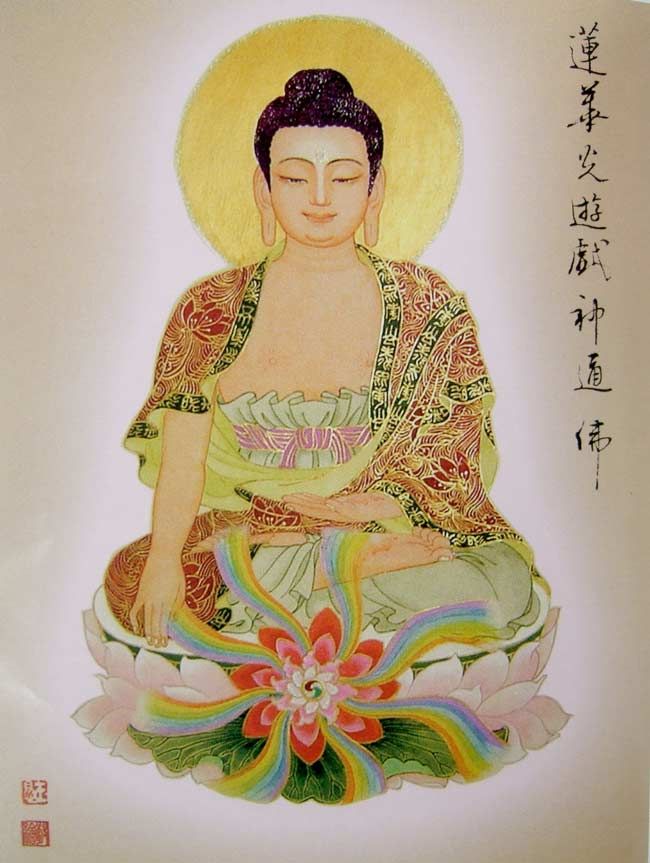 蓮華光遊戲神通佛